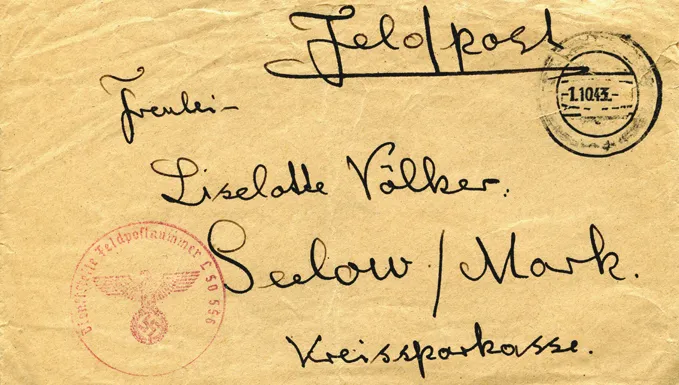 Feldpost
-1.10.43.-
Fräulein
Liselotte Völker.
Seelow / Mark.
Kreissparkasse.
Dienststelle Feldpostnummer L 50 556